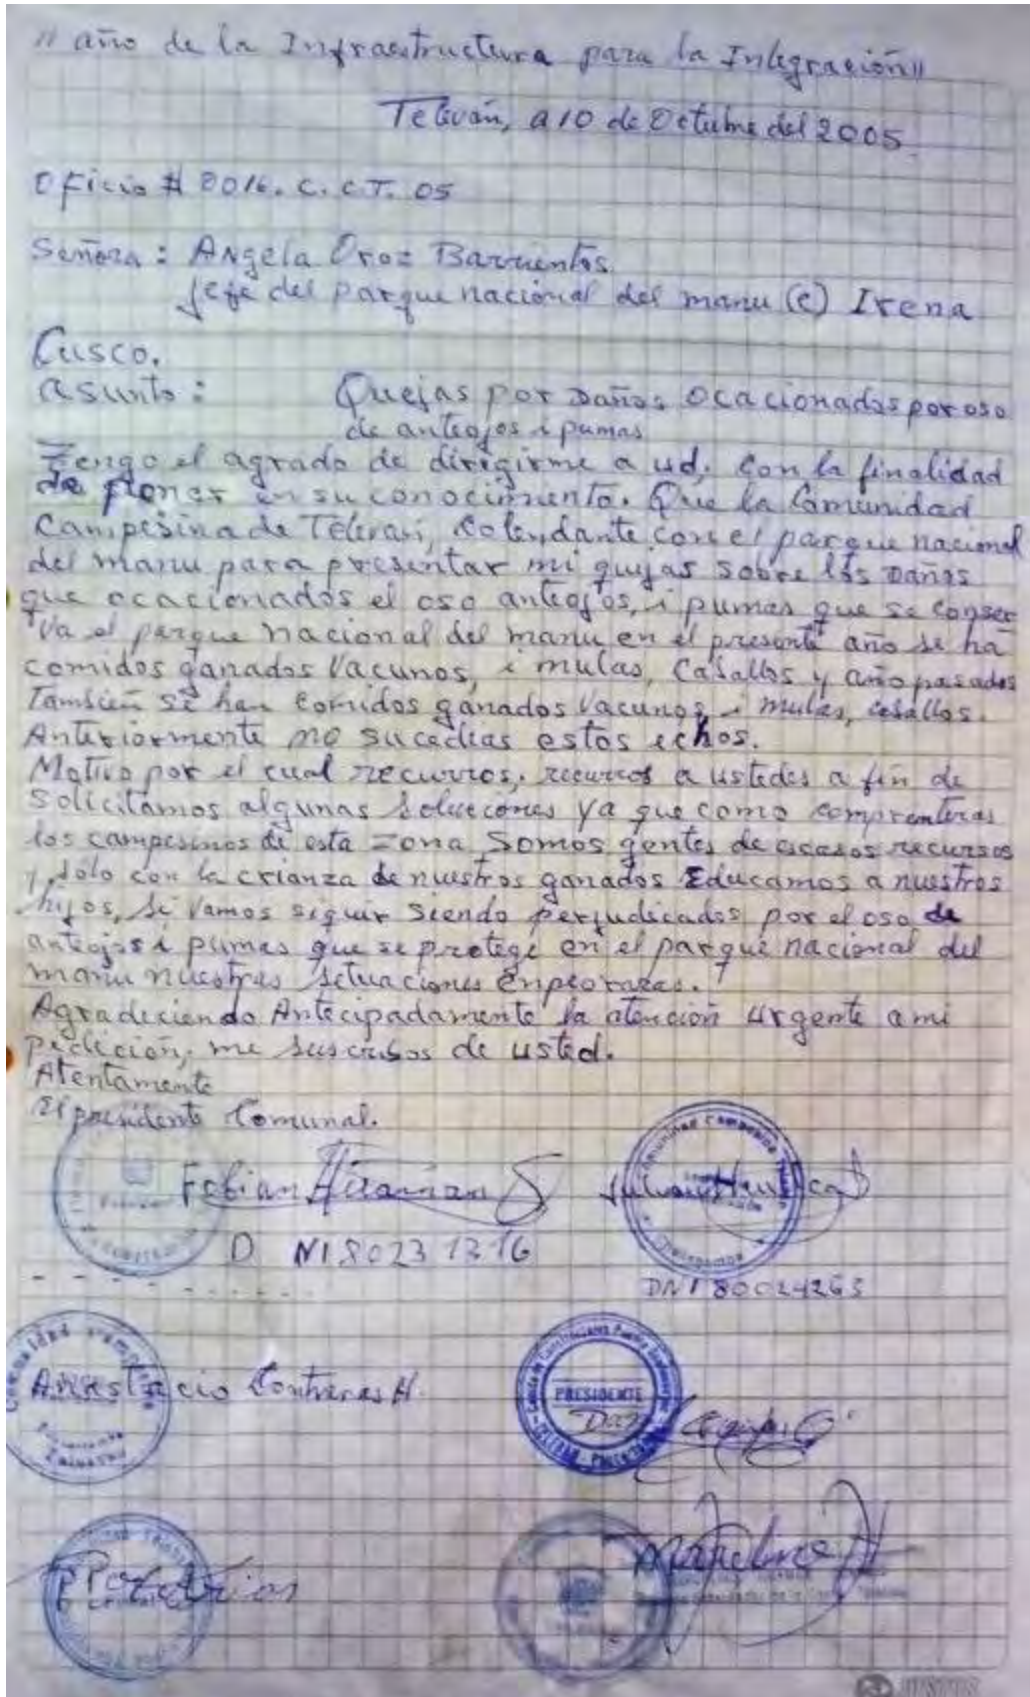 "año de la Infraestructura para la Integración"
Televán, a 10 de Octubre del 2005
Oficio # 0016. C. C.T. 05
Señora : Angela Oroz Barrientos
Jefe del parque nacional del manu (e) Irena
Cusco.
asunto : Quejas por Daños ocacionados por oso
de anteojos i pumas
Tengo el agrado de dirigirme a ud, Con la finalidad
de poner en su conocimiento. Que la Comunidad
Campesina de colendante con el parque nacional
del manu para presentar mi quejas sobre los Daños
que ocacionados el oso anteojos, i pumas que se conser
va el parque nacional del manu en el presente año se ha
comidos ganados Vacunos, i mulas, Caballos y año pasados
Tambien se han comidos ganados Vacunos i mulas, caballos.
Anteriormente no sucedias estos echos.
Motivo por el cual recurros, recurros a ustedes a fin de
Solicitamos algunas soluciones ya que como comprenteras
los campesinos de esta zona Somos gentes de escasos recursos
y solo con la crianza de nuestros ganados Educamos a nuestros
hijos, si vamos siguir siendo perjudicados por el oso de
anteojos i pumas que se protege en el parque nacional del
manu nuestras situaciones enpeoraras.
Agradeciendo Antecipadamente la atención urgente a mi
pedición, me suscribos de usted.
Atentamente
El presidente Comunal.
Fabian Huaman S
D NI 8023 1316
DNI 80024263
Anastacio Contreras H.
PRESIDENTE